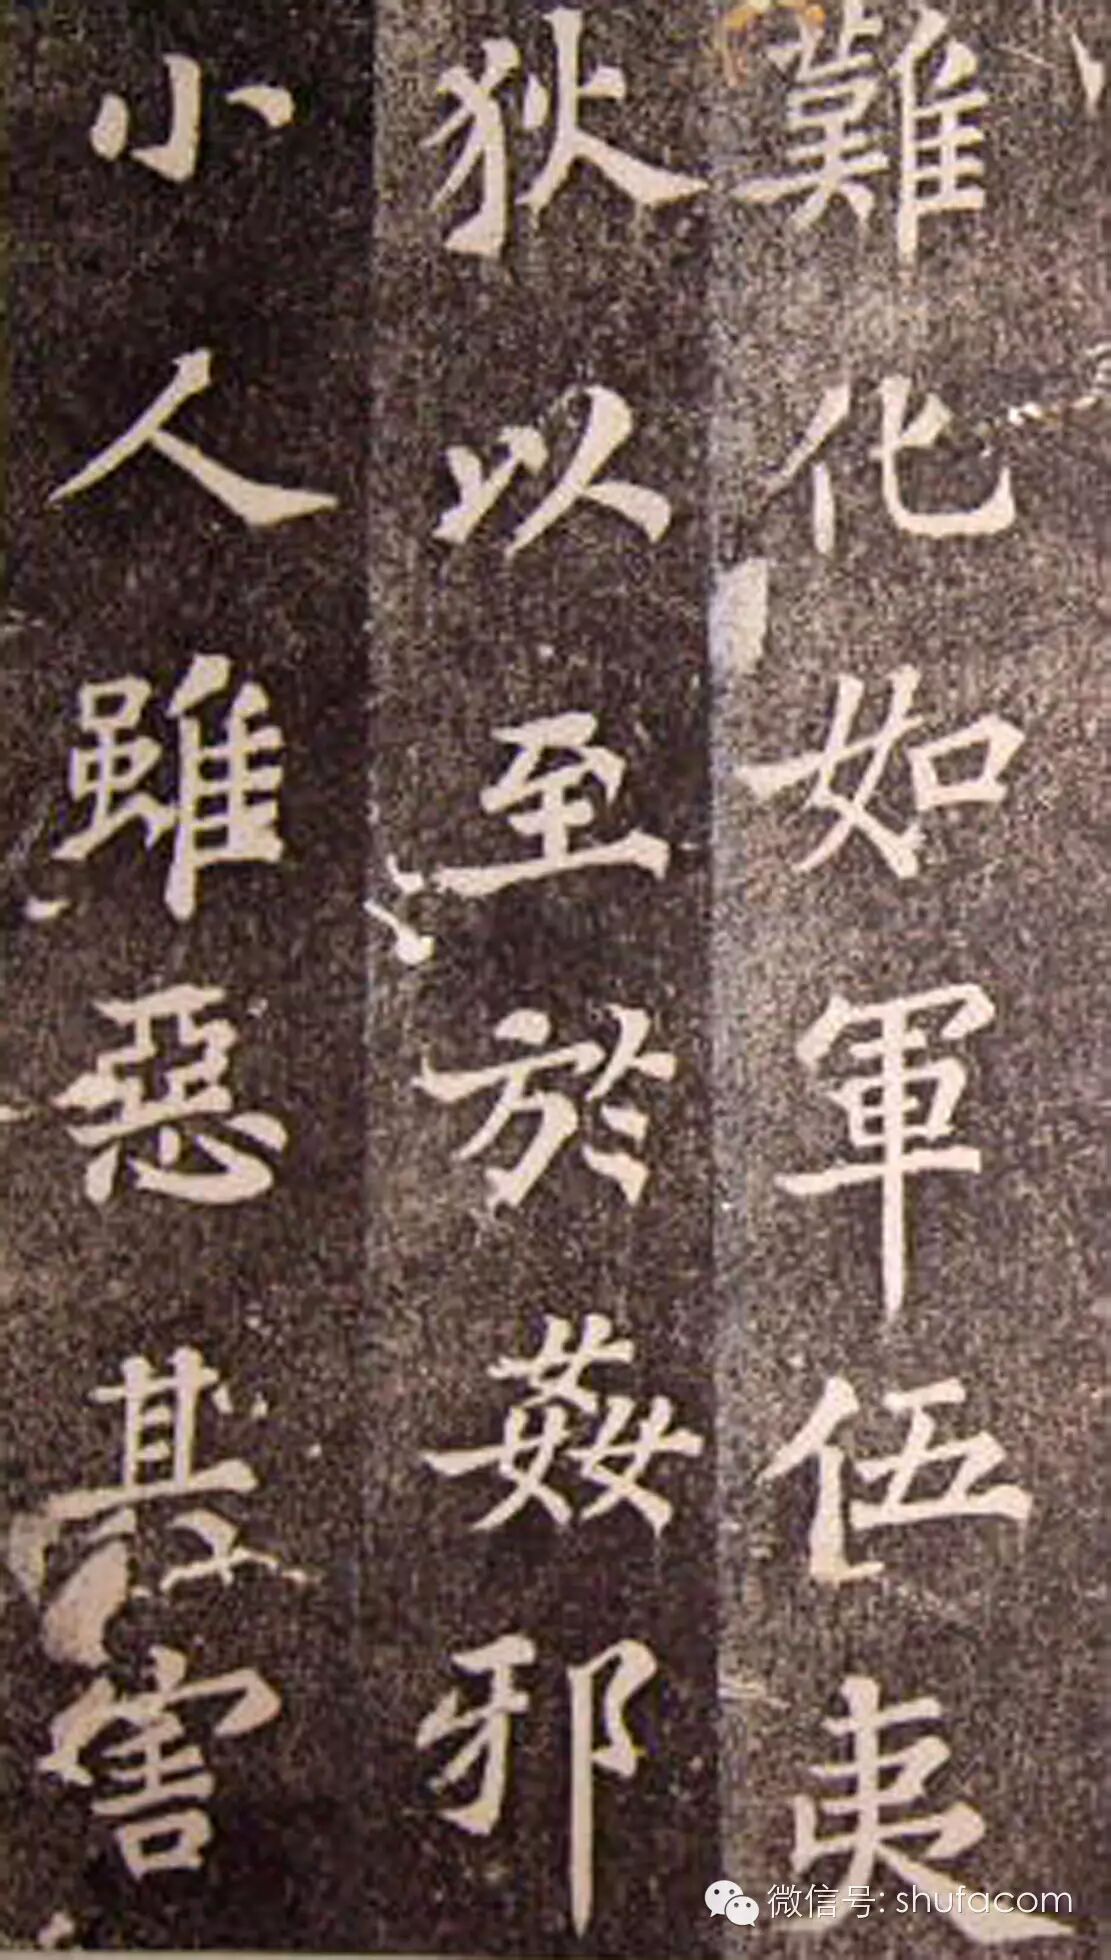 難化如軍伍夷
狄以至於姦邪
小人雖惡其害
微信号: shufacom